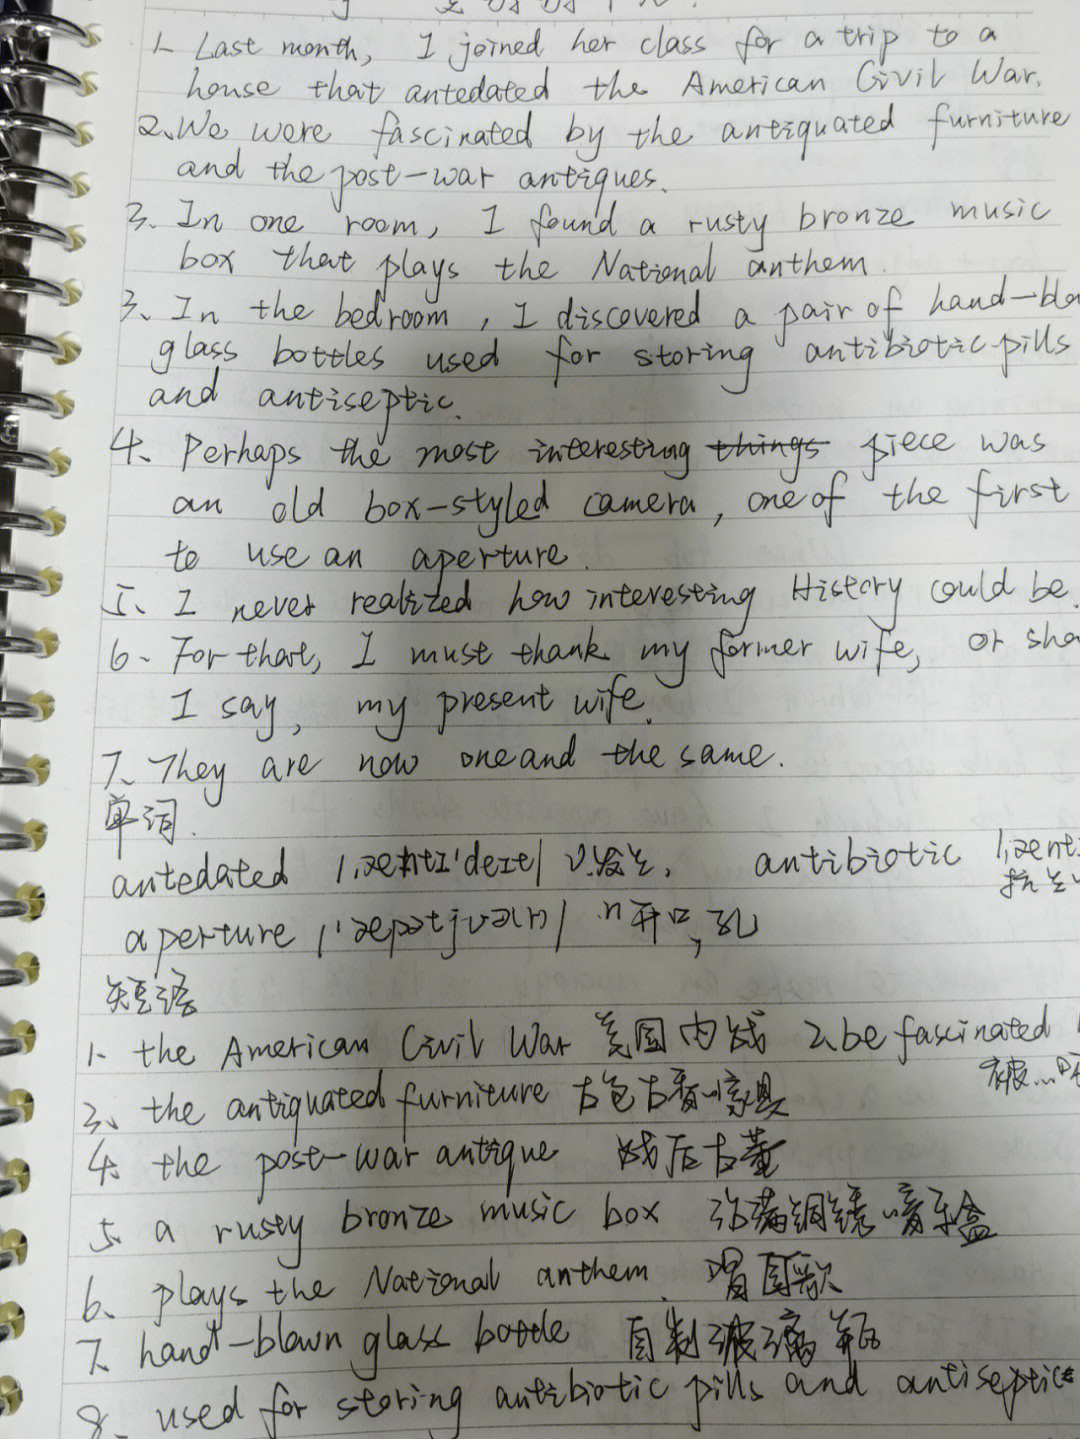 1. Last month, I joined her class for a trip to a
house that antedated the American Civil War.
2. We were fascinated by the antiquated furniture
and the post-war antiques.
3. In one room, I found a rusty bronze music
box that plays the National anthem.
3. In the bedroom, I discovered a pair of hand-blo
glass bottles used for storing antibiotic pills
and antiseptic.
4. Perhaps the most interesting things piece was
an old box-styled camera, one of the first
to use an aperture.
5. I never realized how interesting History could be.
6. For that, I must thank my former wife, or sho
I say, my present wife.
7. They are now one and the same.
单词.
antedated v.发生, antibiotic
aperture n开口,孔
短语
1. the American Civil War 美国内战 2.be fascinated
被...吸
3. the antiquated furniture 古色古香家具
4. the post-war antique 战后古董
5. a rusty bronze music box 沾满铜锈音乐盒
6. plays the National anthem. 唱国歌
7. hand-blown glass bottle 自制玻璃瓶
8. used for storing antibiotic pills and antiseptic